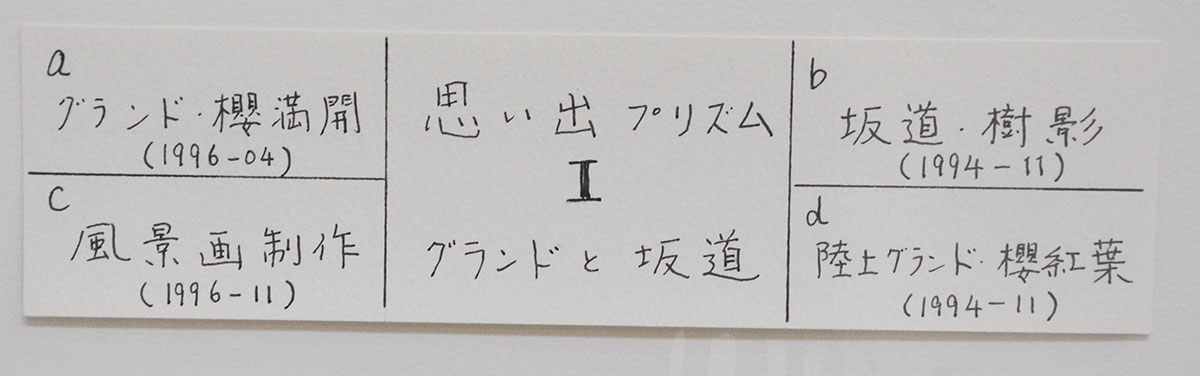 a
グランド・櫻満開
(1996-04)
c
風景画制作
(1996-11)
思い出プリズム
I
グランドと坂道
b
坂道・樹影
(1994-11)
d
陸上グランド・櫻紅葉
(1994-11)